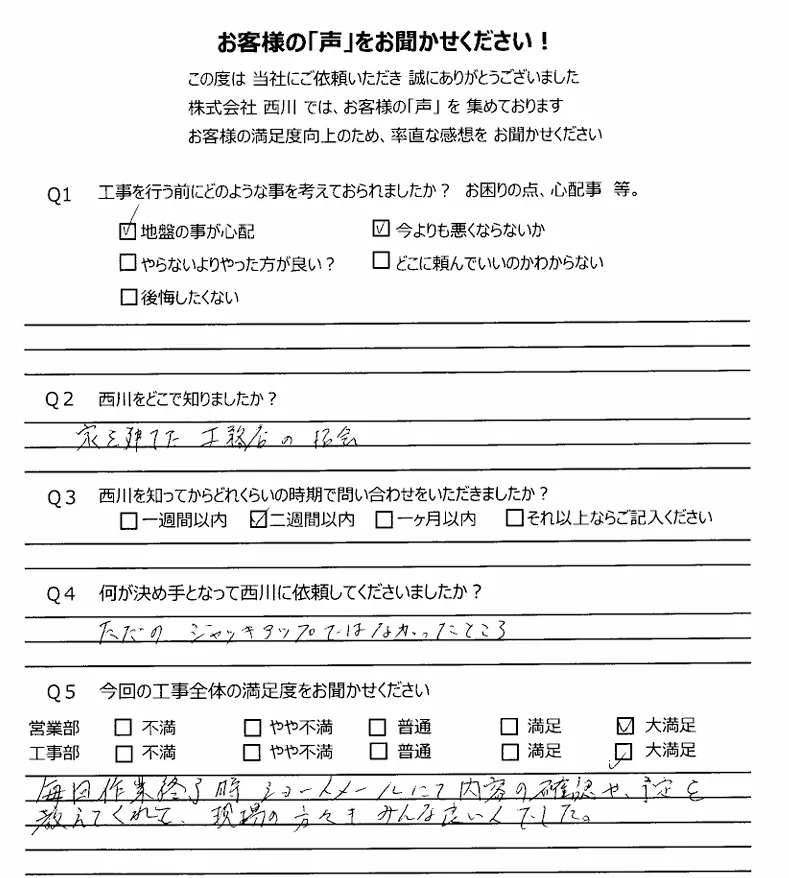 お客様の「声」をお聞かせください！
この度は 当社にご依頼いただき 誠にありがとうございました
株式会社 西川 では、お客様の「声」 を 集めております
お客様の満足度向上のため、率直な感想を お聞かせください
Q1 工事を行う前にどのような事を考えておられましたか？ お困りの点、心配事 等。
☑地盤の事が心配 ☑今よりも悪くならないか
☐やらないよりやった方が良い？ ☐どこに頼んでいいのかわからない
☐後悔したくない
Q2 西川をどこで知りましたか？
家を建てた 工務店の 紹会
Q3 西川を知ってからどれくらいの時期で問い合わせをいただきましたか？
☐一週間以内 ☑二週間以内 ☐一ヶ月以内 ☐それ以上ならご記入ください
Q4 何が決め手となって西川に依頼してくださいましたか？
ただの ジャッキアップではなかったところ
Q5 今回の工事全体の満足度をお聞かせください
営業部 ☐ 不満 ☐ やや不満 ☐ 普通 ☐ 満足 ☑ 大満足
工事部 ☐ 不満 ☐ やや不満 ☐ 普通 ☐ 満足 ☑ 大満足
毎回作業終了時 ショートメールにて 内容の確認や、予定を
教えてくれて、現場の方々も みんな良い人でした。